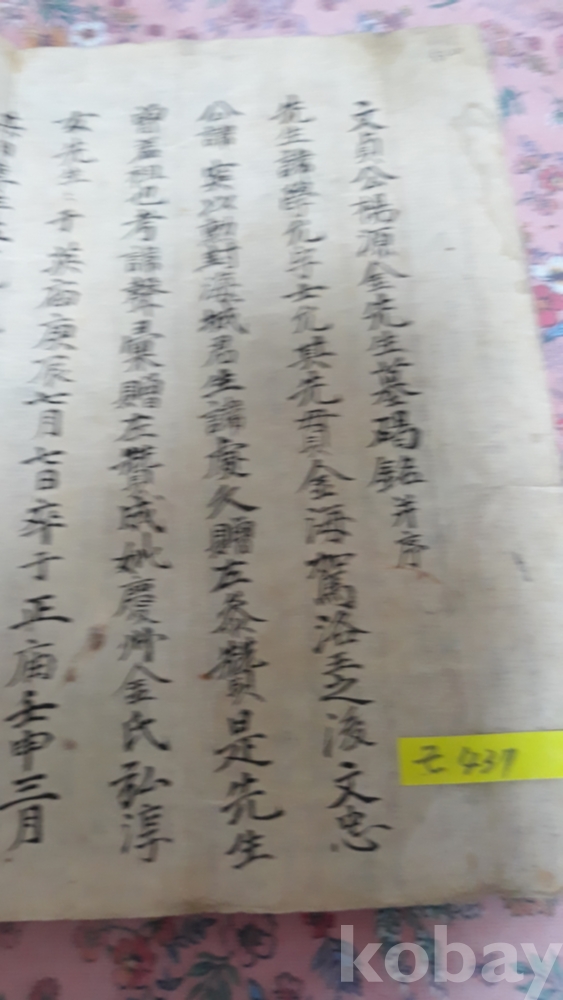 文貞公楊源金先生墓碣銘并序
先生諱學元字士元其先貫金海駕洛王之後文忠
公諱 以勳封海城君生諱慶久贈左參贊是先生
曾孟祖也考諱聲彙贈左贊成妣慶州金氏弘淳
女先生 于英庙庚辰七月七日卒于正庙壬申三月
437
kobay